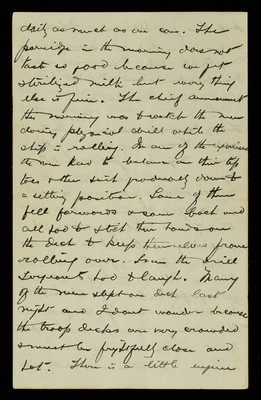 daily as much as we can. The
porridge in the morning does not
taste so good because we get
sterilized milk but every thing
else is fine. The chief amusement
this morning was to watch the men
doing physical drill while the
ship is rolling. In one of the exercises
the men had to balance on their tip
toes & then sink gradually down to
a sitting position. Some of them
fell forwards & some backward
all had to stick their hands on
the deck to keep themselves from
rolling over. Even the drill
sergeants had to laugh. Many
of the men slept on deck last
night and I dont wonder because
the troop decks are very crowded
& must be frightfully close and
hot. There is a little